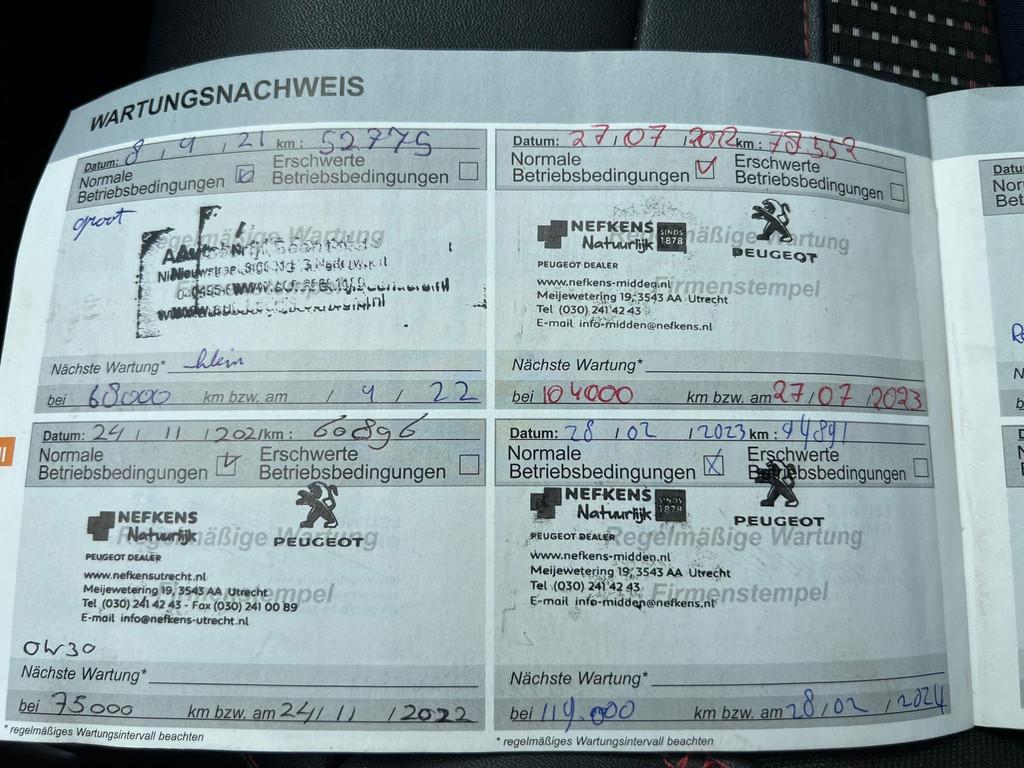 WARTUNGSNACHWEIS
Datum: 8 / 4 / 21 km: 52775
Normale Betriebsbedingungen
Erschwerte Betriebsbedingungen
groot
Regelmäßige Wartung
Firmenstempel
Nächste Wartung* klein
bei 68000 km bzw. am / 4 / 22
Datum: 27/07 / km: 78.552
Normale Betriebsbedingungen
Erschwerte Betriebsbedingungen
Regelmäßige Wartung
Firmenstempel
NEFKENS
Natuurlijk
SINDS 1878
PEUGEOT
PEUGEOT DEALER
www.nefkens-midden.nl
Meijewetering 19, 3543 AA Utrecht
Tel (030) 241 42 43
E-mail info-midden@nefkens.nl
Nächste Wartung*
bei 104000 km bzw. am 27/07 /2023
Datum: 24 / 11 / 2021 km: 60896
Normale Betriebsbedingungen
Erschwerte Betriebsbedingungen
Regelmäßige Wartung
Firmenstempel
NEFKENS
Natuurlijk
PEUGEOT
PEUGEOT DEALER
www.nefkensutrecht.nl
Meijewetering 19, 3543 AA Utrecht
Tel (030) 241 42 43 - Fax (030) 241 00 89
E-mail info@nefkens-utrecht.nl
0W30
Nächste Wartung*
bei 75000 km bzw. am 24/ 11 / 2022
* regelmäßiges Wartungsintervall beachten
Datum: 28 / 02 / 2023 km: 94891
Normale Betriebsbedingungen
Erschwerte Betriebsbedingungen
Regelmäßige Wartung
Firmenstempel
NEFKENS
Natuurlijk
SINDS 1878
PEUGEOT
PEUGEOT DEALER
www.nefkens-midden.nl
Meijewetering 19, 3543 AA Utrecht
Tel (030) 241 42 43
E-mail info-midden@nefkens.nl
Nächste Wartung*
bei 119.000 km bzw. am 28/02 / 2024
* regelmäßiges Wartungsintervall beachten